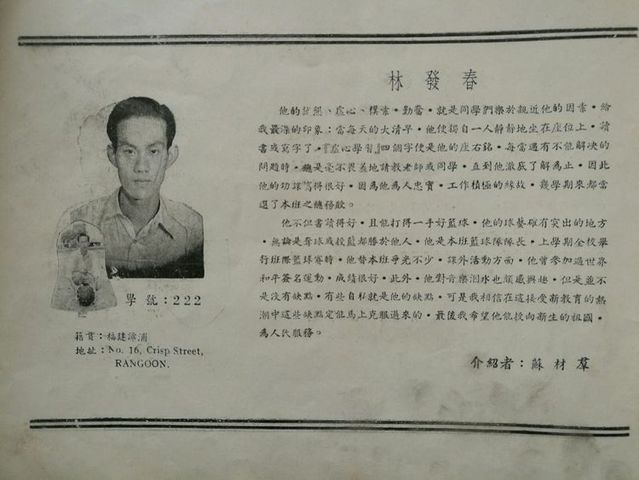 林發春
他的誠懇、虛心、樸素、勤奮，就是同學們樂於親近他的因素。給
我最深的印象：當每天的大清早，他便獨自一人靜靜地坐在座位上，讀
書或寫字了。『虛心學習』四個字便是他的座右銘，每當遇有不能解決的
問題時，總是毫不畏羞地請教老師或同學，直到他澈底了解為止，因此
他的功課寫得很好，因為他為人忠實，工作積極的緣故，幾學期來都當
選了本班之總務股。
他不但書讀得好，且能打得一手好籃球，他的球藝確有突出的地方
，無論是奪球或投籃都勝於他人。他是本班籃球隊隊長，上學期全校舉
行班際籃球賽時，他替本班爭光不少。課外活動方面，他曾參加過世界
和平簽名運動，成績很好。此外，他對音樂游水也頗感興趣，但是並不
是沒有缺點，有些自私就是他的缺點，可是我相信在這接受新教育的熱
潮中這些缺點定能馬上克服過來的，最後我希望他能投向新生的祖國，
為人民服務。
介紹者：蘇材羣
學號：222
籍貫：福建漳浦
地址：No. 16, Crisp Street,
RANGOON.